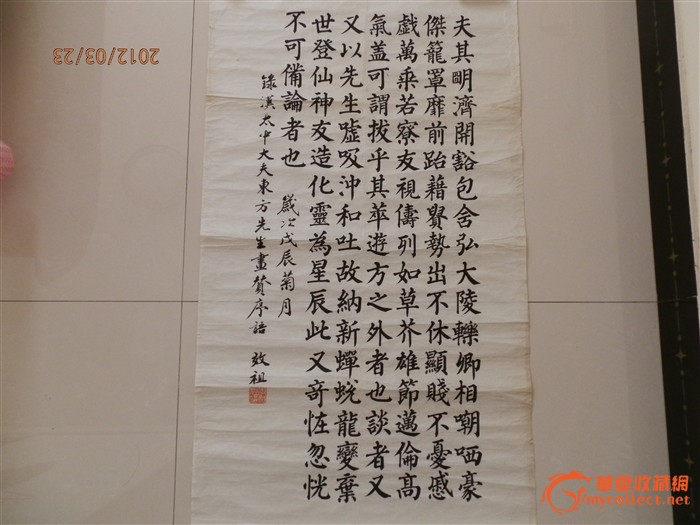 夫其眀濟開豁包舍弘大陵轢卿相嘲哂豪
傑籠罩靡前跆藉貴勢出不休顯賤不憂慼
戲萬乘若寮友視儔列如草芥雄節邁倫高
氣盖可謂拔乎其萃遊方之外者也談者又
又以先生嘘吸沖和吐故納新蟬蛻龍變棄
世登仙神友造化靈為星辰此又奇恠忽恍
不可備論者也
歲次戊辰菊月
錄漢太中大夫東方先生畫贊序語 效祖
2012/03/23
華夏收藏網
mycollect.net